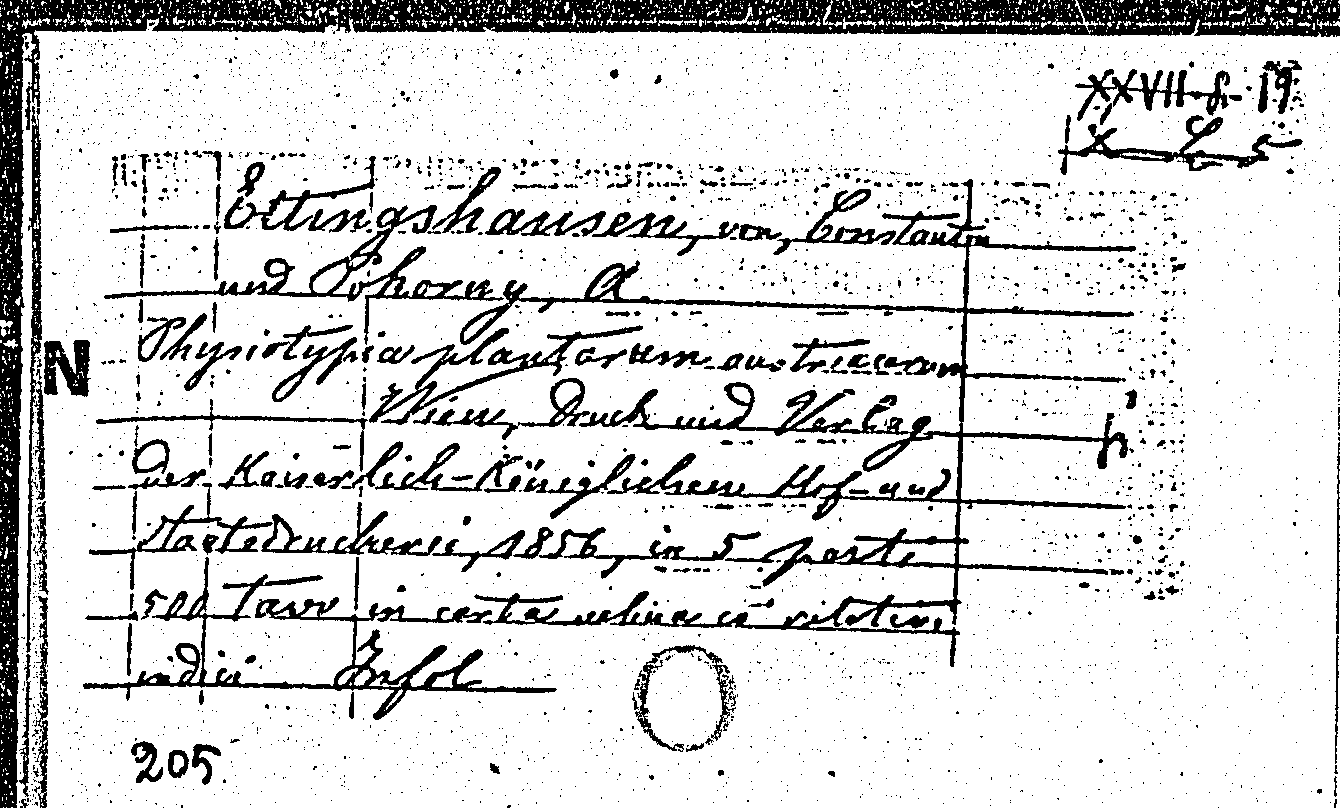 XXVII-&-19
X & 5
Ettingshausen, von, Constantin
und Pokorny, A.
Physiotypia plantarum austriacarum
N
Wien, Druck und Verlag
der Kaiserlich-Königlichen Hof-und
Staatsdruckerei, 1856, in 5 parti
500 tavv in carta velina
indici Infol
205